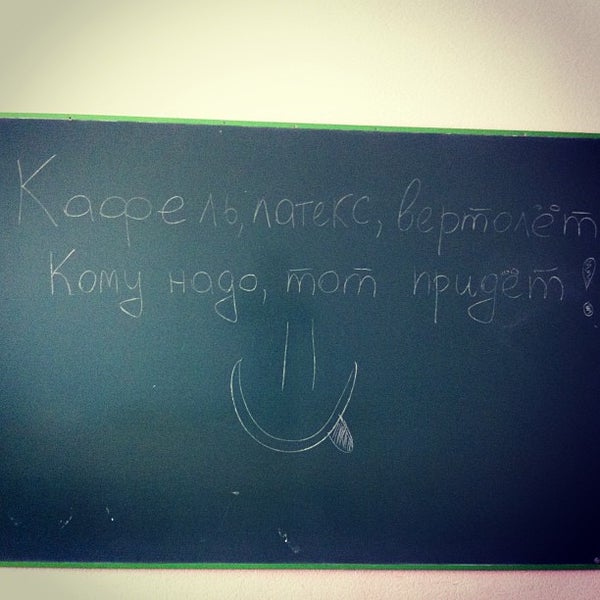 Кафель, латекс, вертолёт
Кому надо, тот придёт!